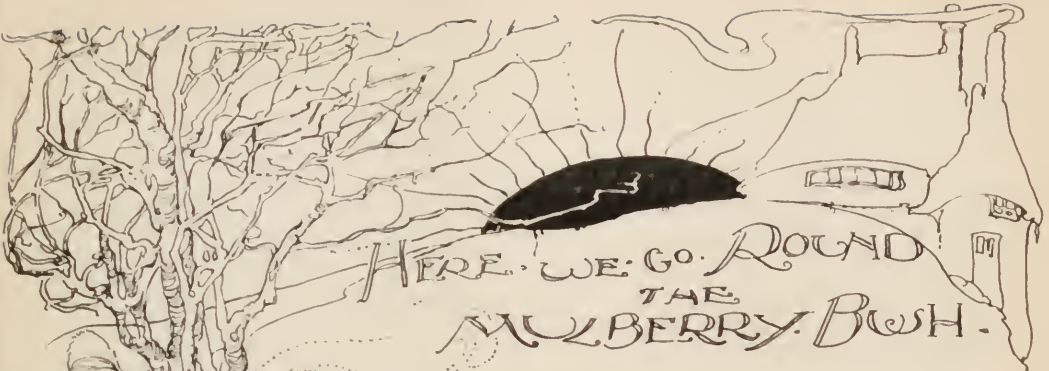 HERE · WE · GO · ROUND
THE
MULBERRY · BUSH ·